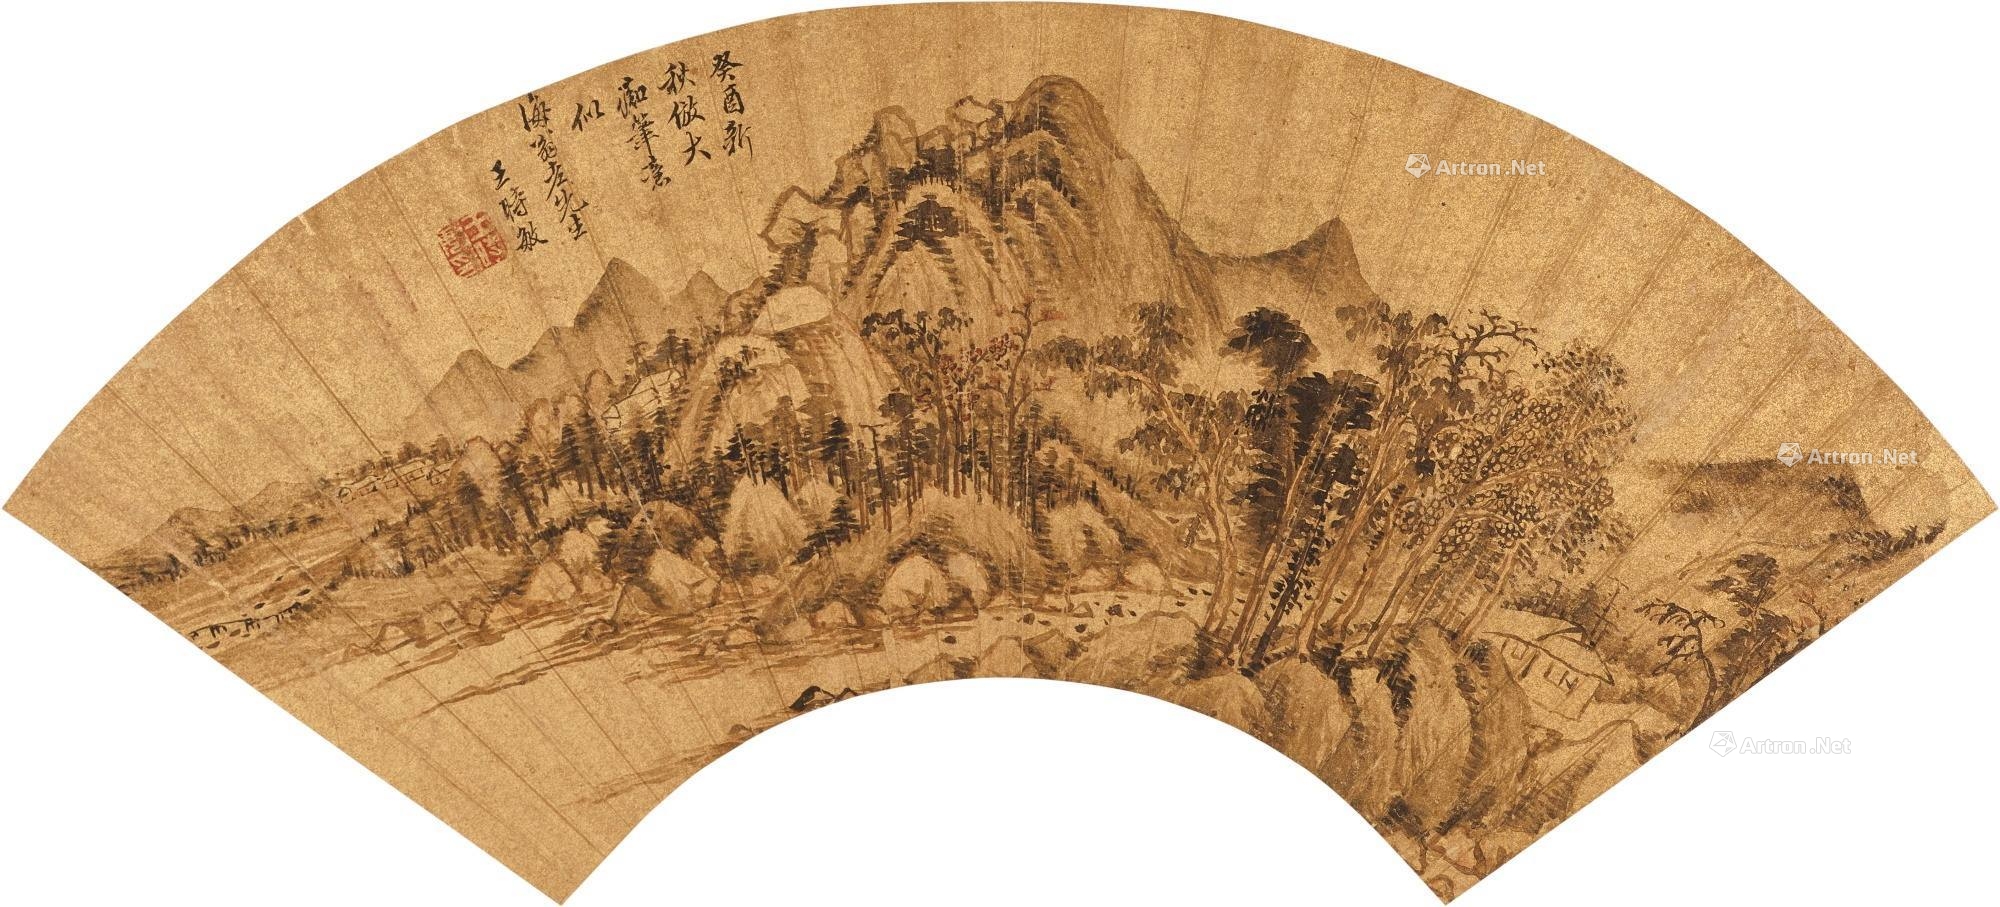 癸酉新
秋倣大
癡筆意
似
海翁老先生
王時敏
Artron.Net
Artron.Net
Artron.Net